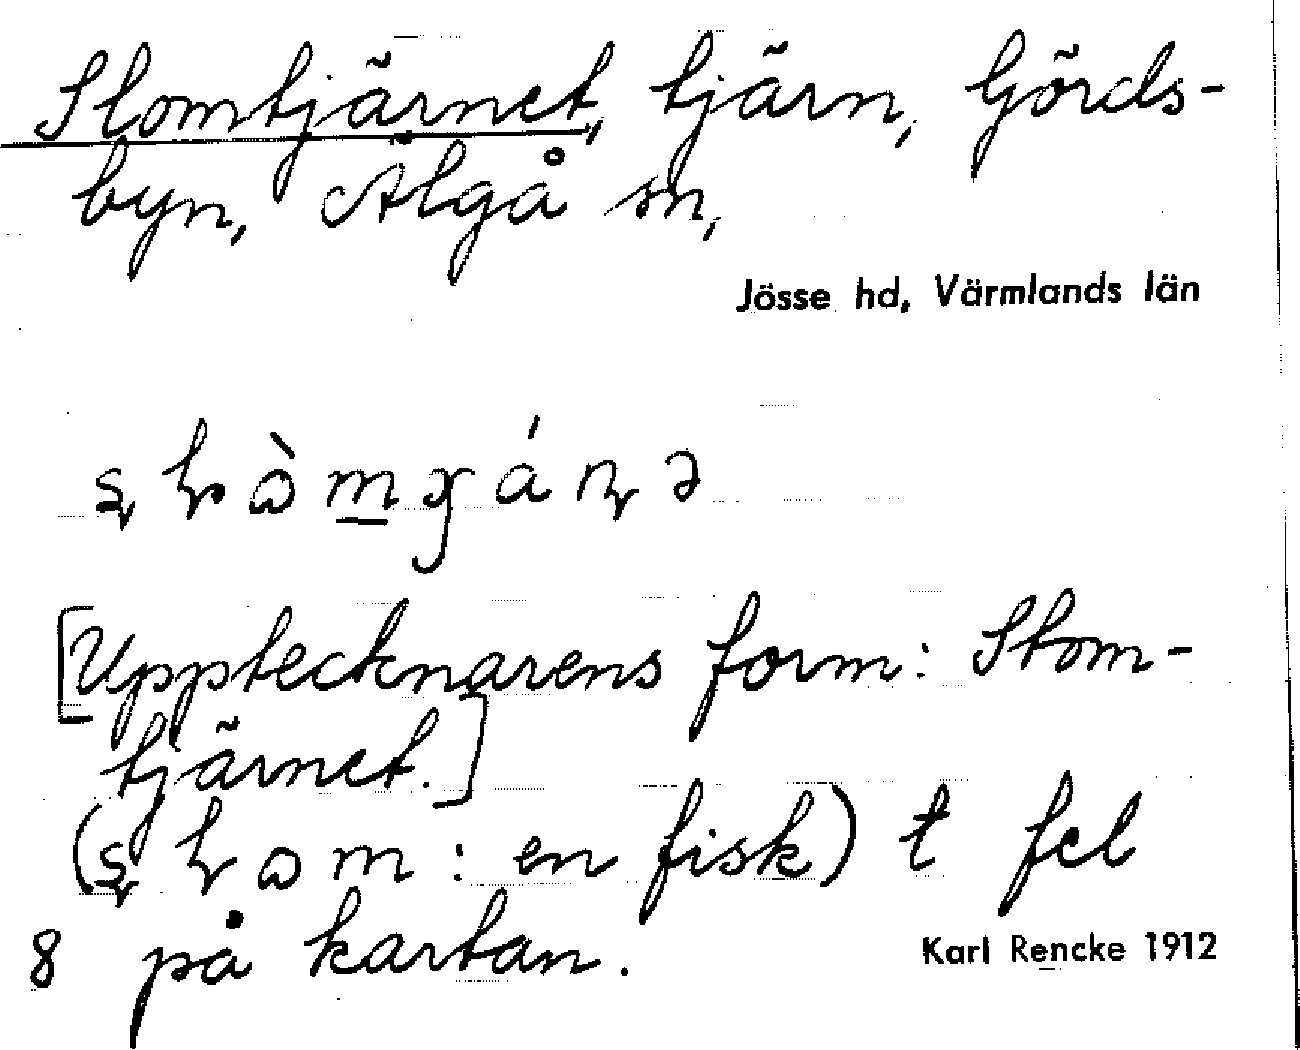 Slomtjärnet, tjärn, Görds-
byn, Älgå sn,
Jösse hd, Värmlands län
ʂɽòm̲ɣáɳə
[Upptecknarens form: Stom-
tjärnet.]
(ʂɽɷm : en fisk) t fel
8 på kartan.
Karl Rencke 1912